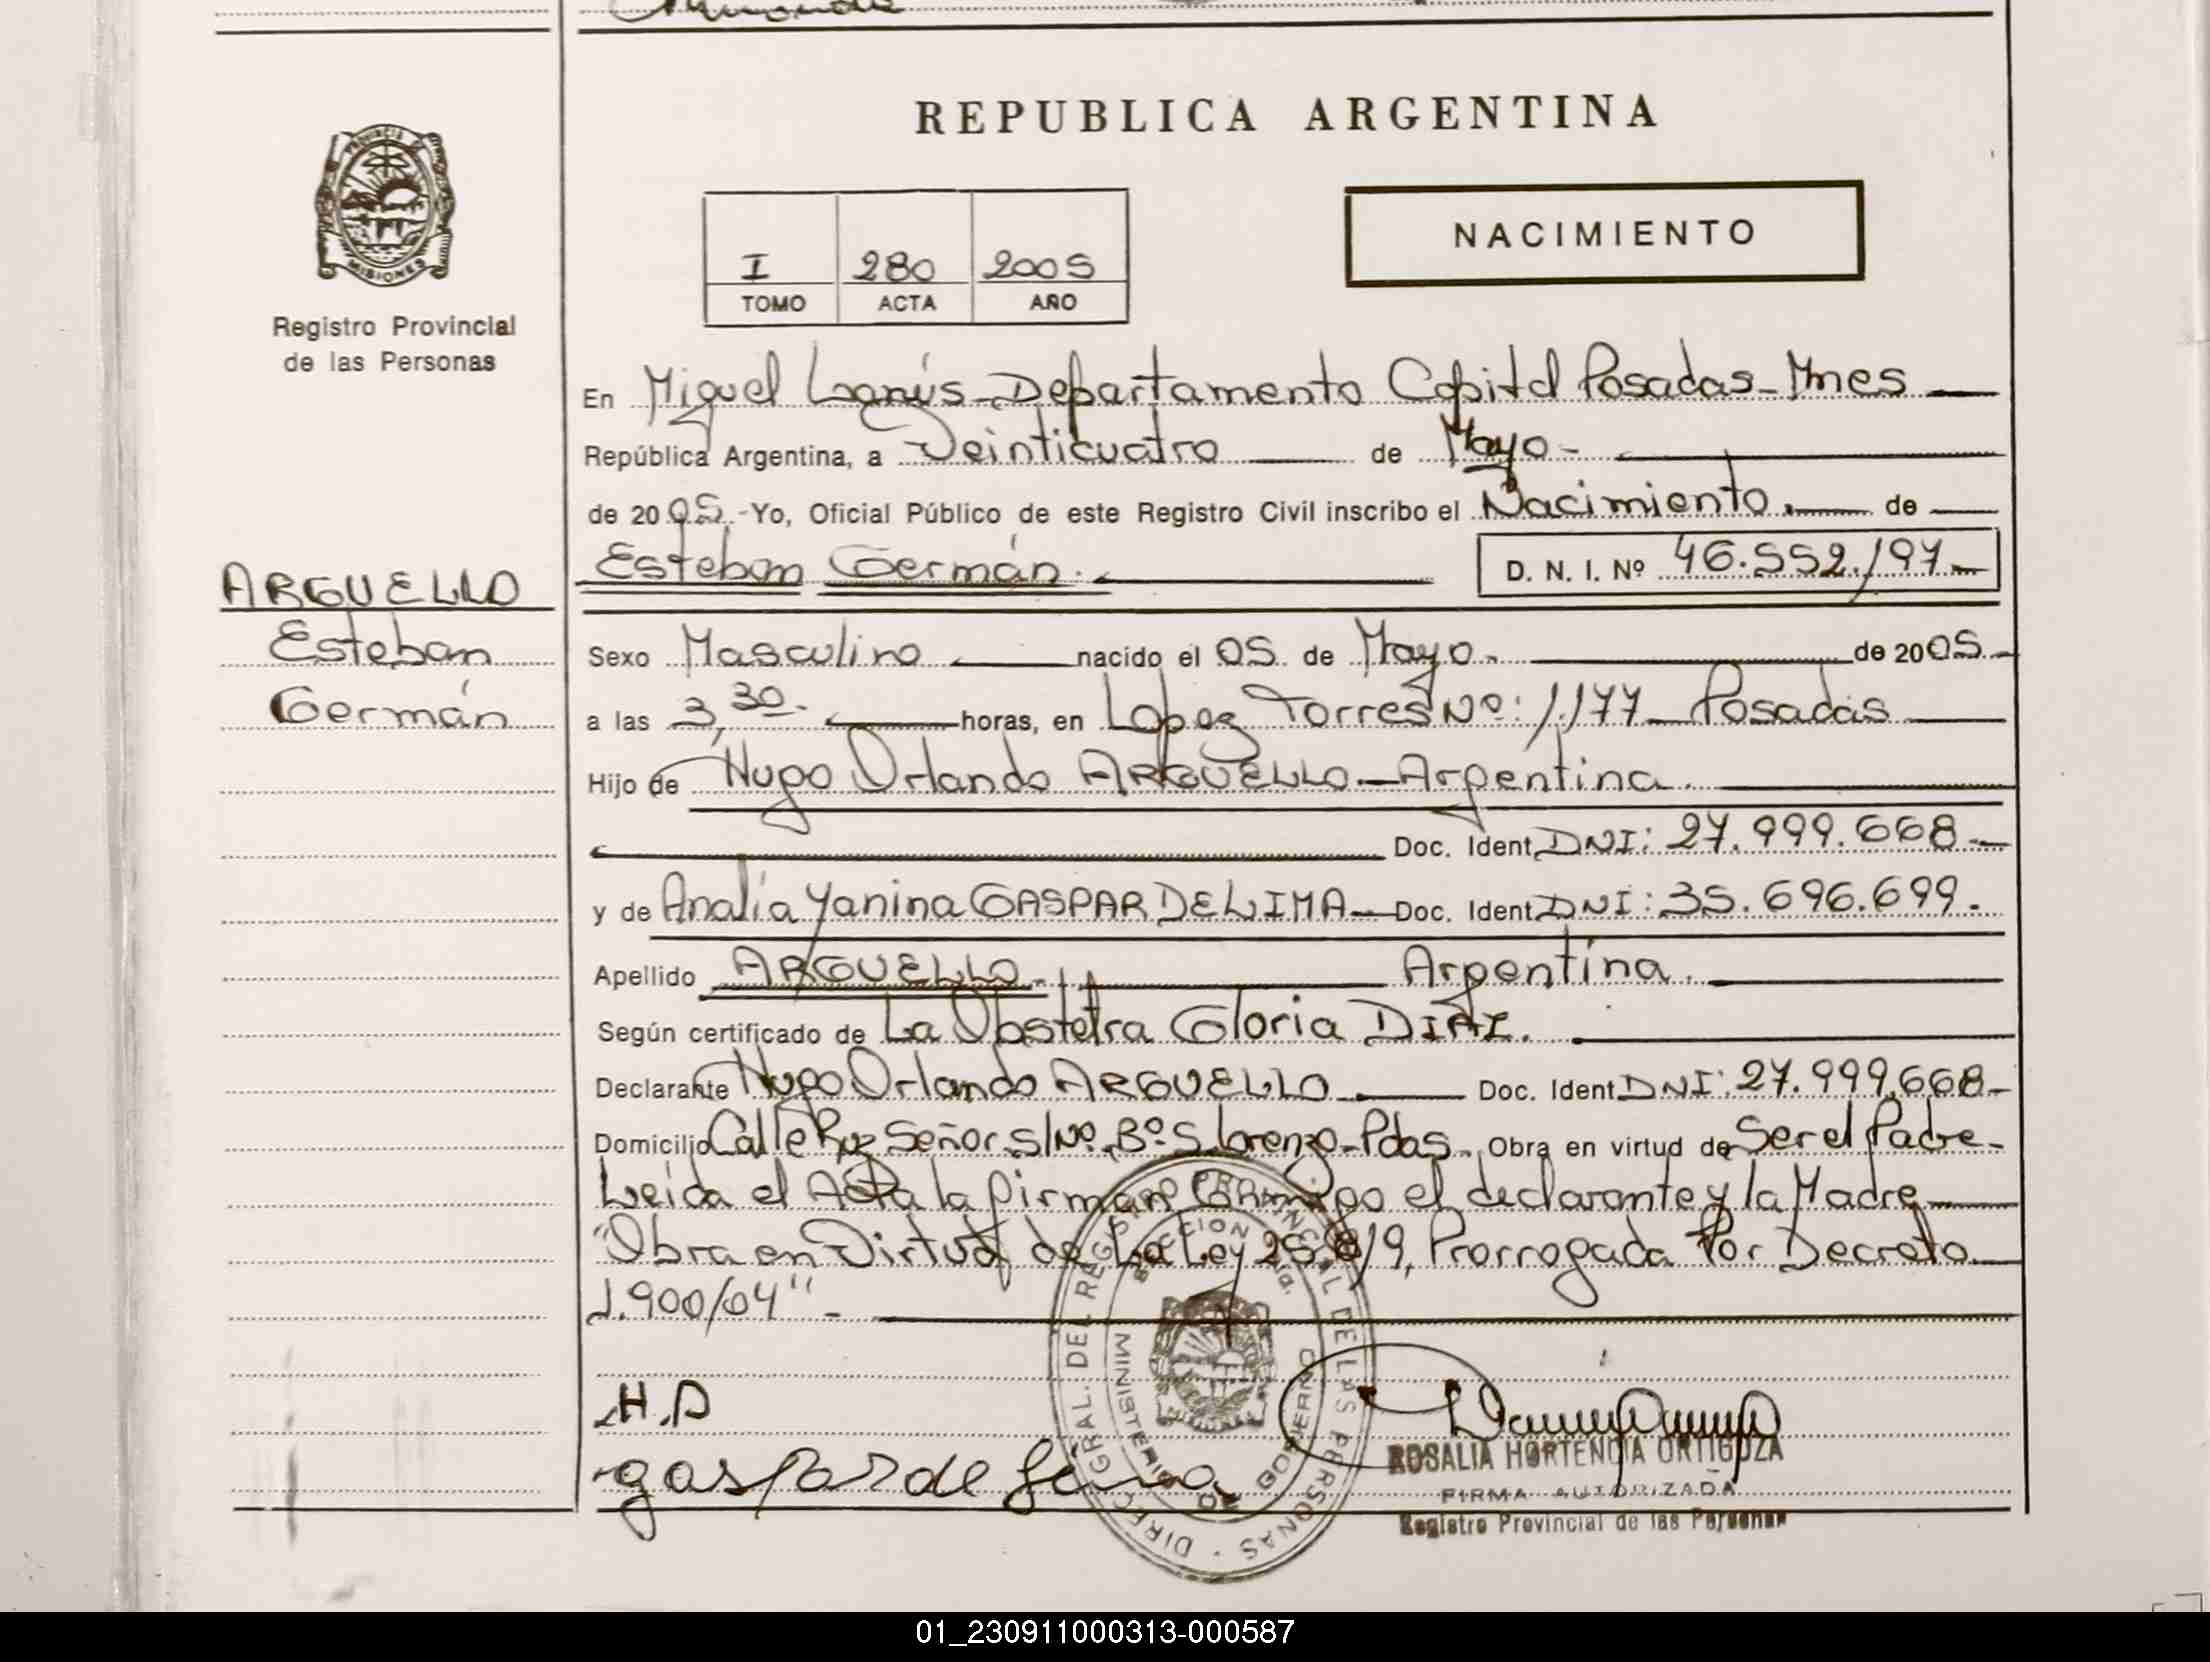 REPUBLICA ARGENTINA
PROVINCIA DE
MISIONES
Registro Provincial
de las Personas
I 280 2005
TOMO ACTA AÑO
NACIMIENTO
En Miguel Lanús - Departamento Capital Posadas - Mnes
República Argentina, a Veinticuatro de Mayo -
de 2005.- Yo, Oficial Público de este Registro Civil inscribo el Nacimiento. de
Esteban Germán. D. N. I. Nº 46.552.197.-
ARGUELLO
Esteban
Germán
Sexo Masculino nacido el 05 de Mayo. de 2005.-
a las 3,30.- horas, en Lopez Torres Nº: 1.177 - Posadas
Hijo de Hugo Orlando ARGUELLO - Argentina.
Doc. Ident. DNI: 27.999.668 -
y de Analía Yanina GASPAR DE LIMA - Doc. Ident. DNI: 35.696.699.
Apellido ARGUELLO.- Argentina.
Según certificado de La Obstetra Gloria DIAZ.
Declarante Hugo Orlando ARGUELLO Doc. Ident. DNI: 27.999.668 -
Domicilio Calle Señor S/Nº Bº S. Lorenzo - Pdas. Obra en virtud de Ser el Padre -
Leida el Acta la firman Conmigo el declarante y la Madre
"Obra en Virtud de La Ley 25.819, Prorrogada Por Decreto
1.900/04" -
H.A
gaspar de lima
DIREC. GRAL. DEL REGISTRO PROVINCIAL DE LAS PERSONAS
MINISTERIO DE GOBIERNO
ROSALIA HORTENCIA ORTIGOZA
FIRMA AUTORIZADA
Registro Provincial de las Personas
01_230911000313-000587